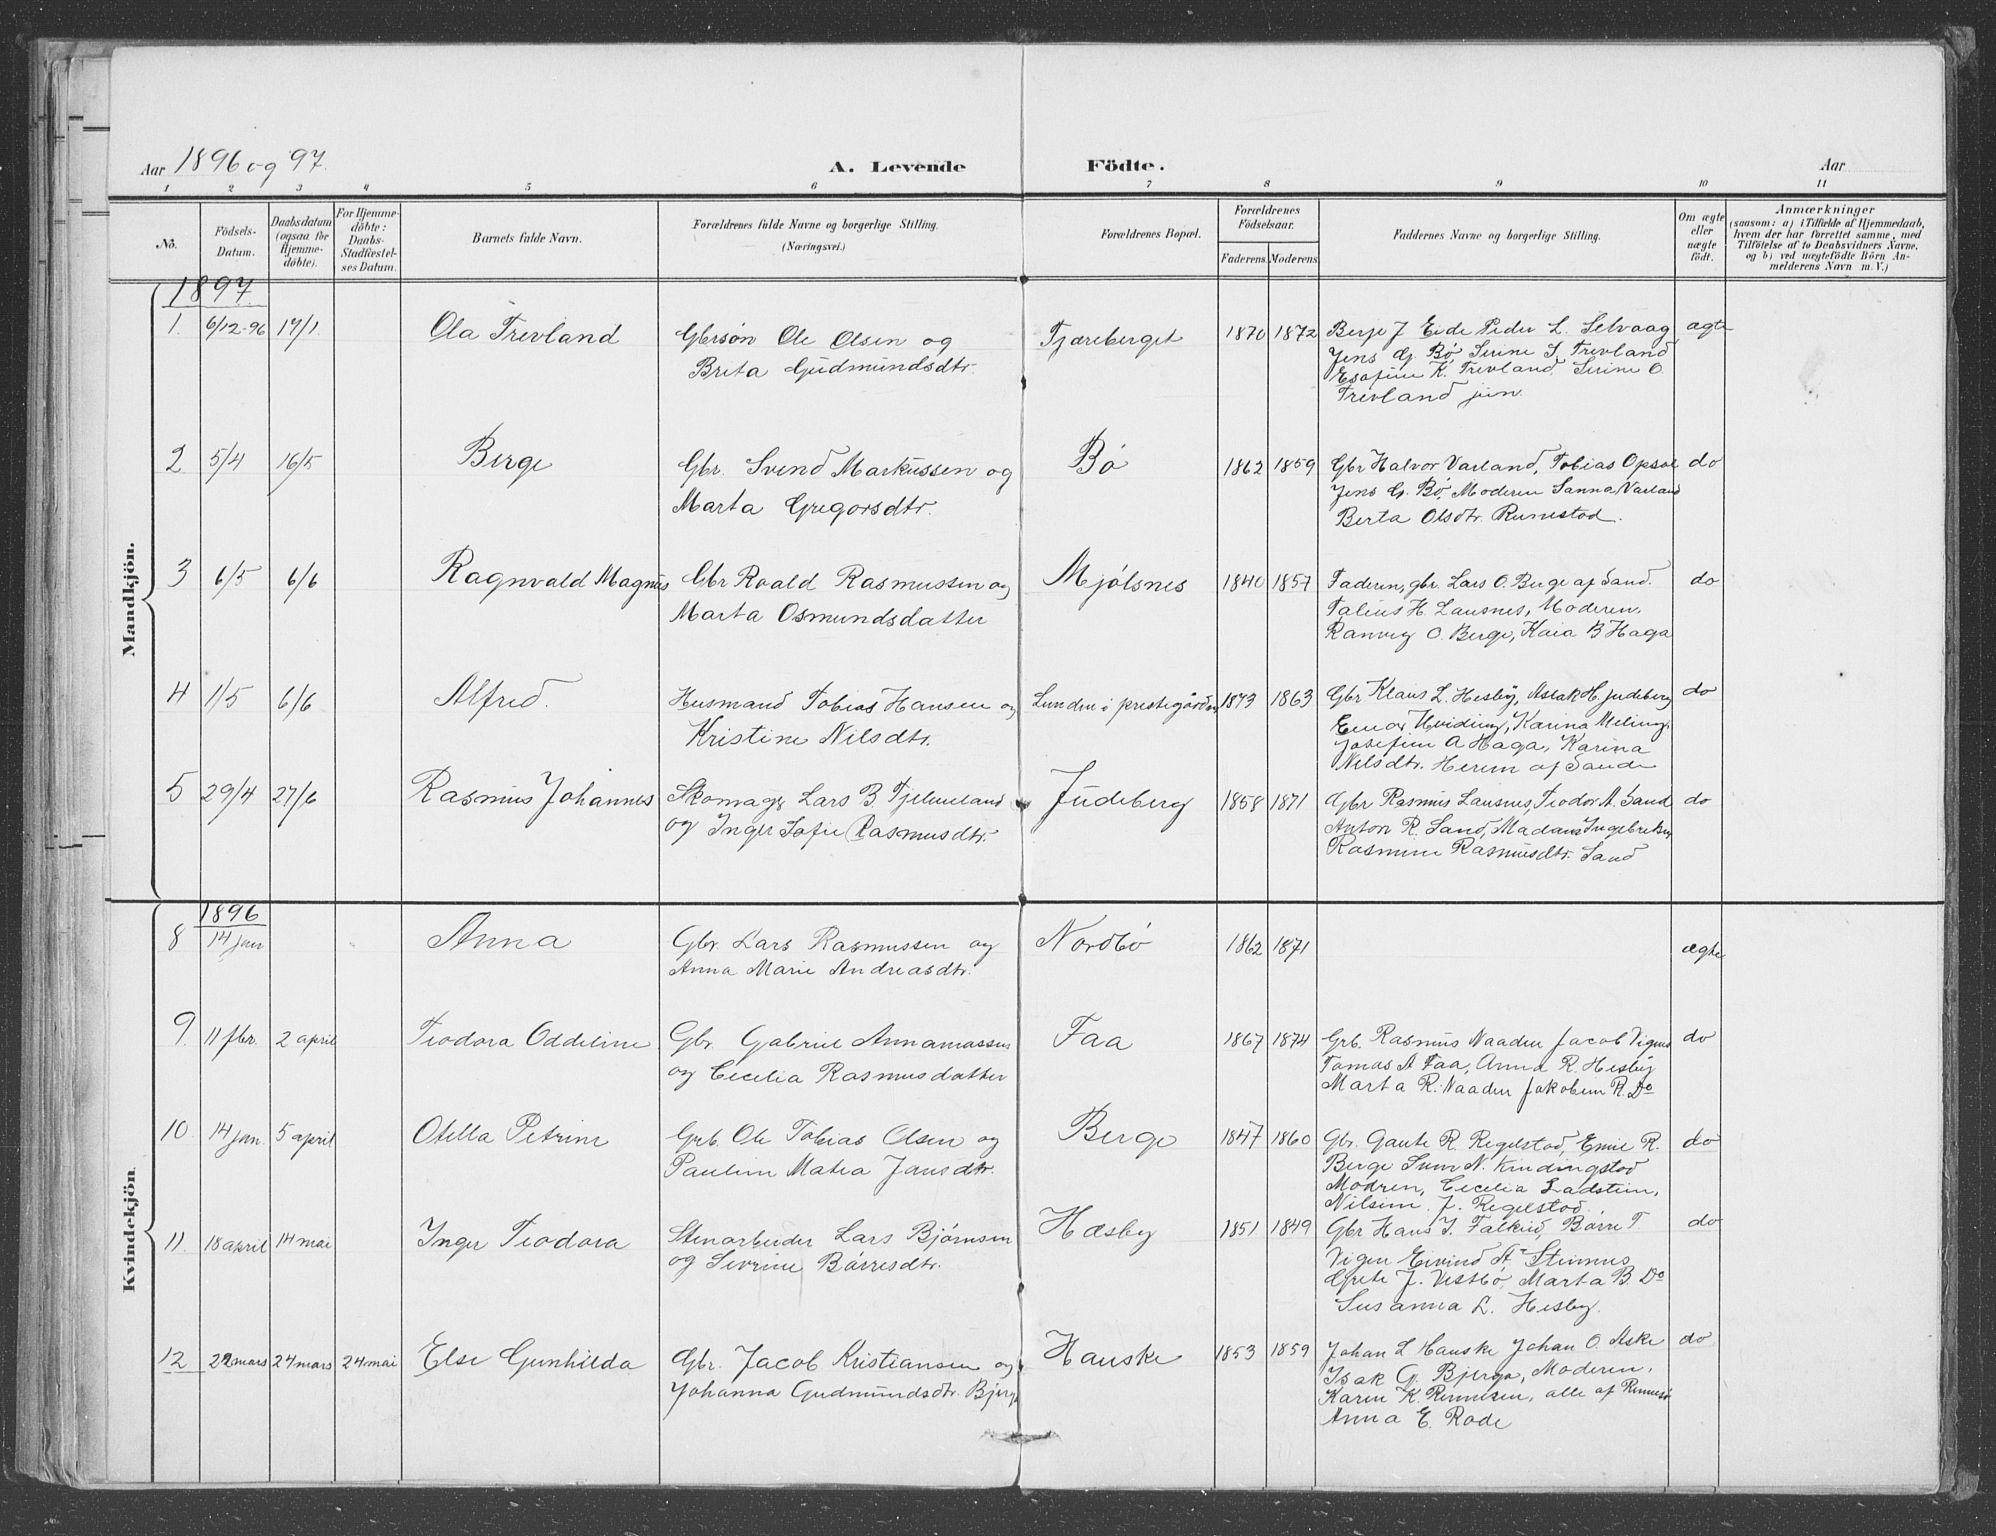 Aar 1896 og 97. A. Levende Födte. Aar
1 2 3 4 5 6 7 8 9 10 11
No. Födsels-Datum. Daabsdatum (ogsaa for Hjemme-döbte). For Hjemme-döbte: Daabs-Stadfæstel-ses Datum. Barnets fulde Navn. Forældrenes fulde Navne og borgerlige Stilling. (Næringsvei.) Forældrenes Bopæl. Forældrenes Födselsaar. Faderens. Moderens. Faddernes Navne og borgerlige Stilling. Om ægte eller uægte födt. Anmærkninger
(saasom: a) i Tilfælde af Hjemmedaab,
hvem der har forrettet samme, med
Tilföielse af to Daabsvidners Navne,
og b) ved uægtefödte Börn An-
melderens Navn m. V.)
Mandkjön.
1897
1. 6/12-96 17/1. Ola Trevland Gbrsøn Ole Olsen og Tjæreberget 1870 1872 Berje J Eide Peder L. Selvaag ægte
Brita Gudmundsdtr. Jens G. Bø Serine S. Trevland
K. Trevland, Serine O.
Trevland jun.
2 5/4 16/5 Berge Gbr. Svend Markussen og Bø 1862 1859 Gbr Halvor Varland, Tobias Opsal do
Marta Gregorsdtr. Jens G. Bø, Moderen Sanna Varland
Berta Olsdtr. Runestad.
3 6/5 6/6 Ragnvald Magnus Gbr Roald Rasmussen og Mjølsnes 1840 1857 Faderen, gbr. Lars O. Berge af Sand. do
Marta Osmundsdatter H. Lausnes, Moderen,
Ranveg O. Berge, Kaia B Haga
4 1/5 6/6 Alfred. Husmand Tobias Hansen og Lunden i prestegården 1873 1863 Gbr Klaus L. Hesby, Aslak H. Judeberg do
Kristine Nilsdtr. Hviding, Karina Meling,
Josefine A Haga, Karina
Nilsdtr. af Sande
5 29/4 27/6 Rasmus Johannes Skomager Lars B. Tjelmeland Judeberg 1858 1871 Gbr Rasmus Lausnes, Teodor A. Sand do
og Inger Sofie Rasmusdtr. Anton R. Sand, Madam Ingebretsen
Rasmine Rasmusdtr. Sand
Kvindekjön.
1896
8 14 jan Anna Gbr. Lars Rasmussen og Nordbø 1862 1871 ægte
Anna Marie Andreasdtr.
9. 11 fbr. 2 april Teodora Oddeline Gbr. Gabriel Annamassus Faa 1867 1874 Grb. Rasmus Naaden Jacob Vignes do
og Cecilia Rasmusdatter Tomas A Faa, Anna R. Hesby
Marta R. Naaden Jakobine R. Do
10. 14 jan. 5 april Otella Petrine Grb. Ole Tobias Olsen og Berge 1847 1860 Gbr. Gaute R. Regelstad, Emil R. do
Pauline Matea Jansdtr. Berge N. Kindingstad
Modren, Cecilia Ladstein,
Nilsine J. Regelstad.
11. 18 april 14 mai Inger Teodora Stenarbeider Lars Bjørnsen Hæsby 1851 1849 Gbr Hans I. Falkeid, Børre T. do
og Sevrine Børresdtr. Vigen Eivind A. Steinnes
Grete J. Vestbø, Marta B. Do
Susanna L. Hesby.
12 22 mars 24 mars 24 mai Else Gunhilda Gbr. Jacob Kristiansen og Hauske 1853 1859 Johan L Hauske Johan O. Aske do
Johanna Gudmundsdtr. Bjerga Isak G. Bjerga, Moderen,
Karen K. Rennesen, alle af Rennesø
Anna E. Rode